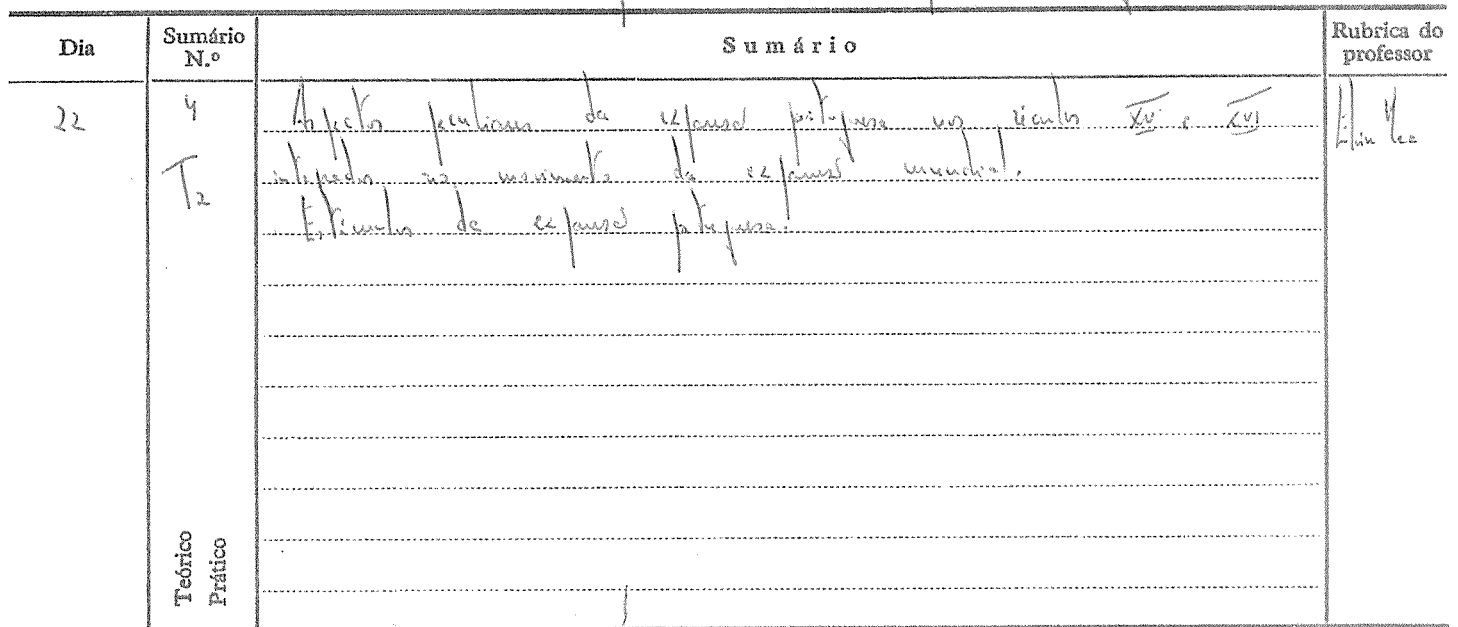 Dia
Sumário N.º
Sumário
Rubrica do professor
22
4
Aspectos peculiares da expansão portuguesa nos séculos XV e XVI
T2
integrados no movimento da expansão mundial.
Estímulos da expansão portuguesa.
Teórico
Prático